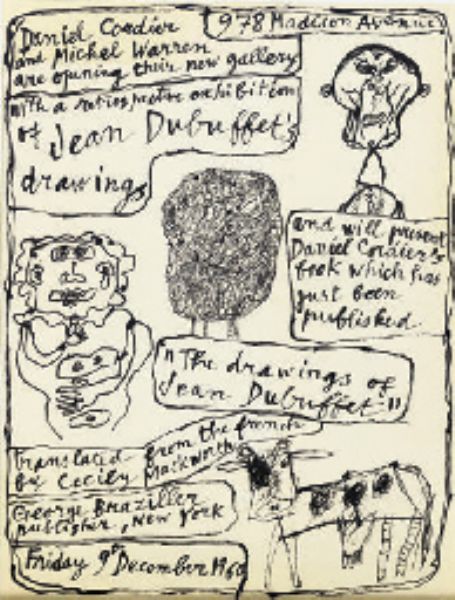 Daniel Cordier
and Michel Warren
are opening their new gallery
978 Madison Avenue
with a retrospective exhibition
of Jean Dubuffet's
drawings
and will present
Daniel Cordier's
book which has
just been
published.
"The drawings of
Jean Dubuffet"
translated from the french
by Cecily Mackworth
George Braziller
publisher, New York
Friday 9th December 1960